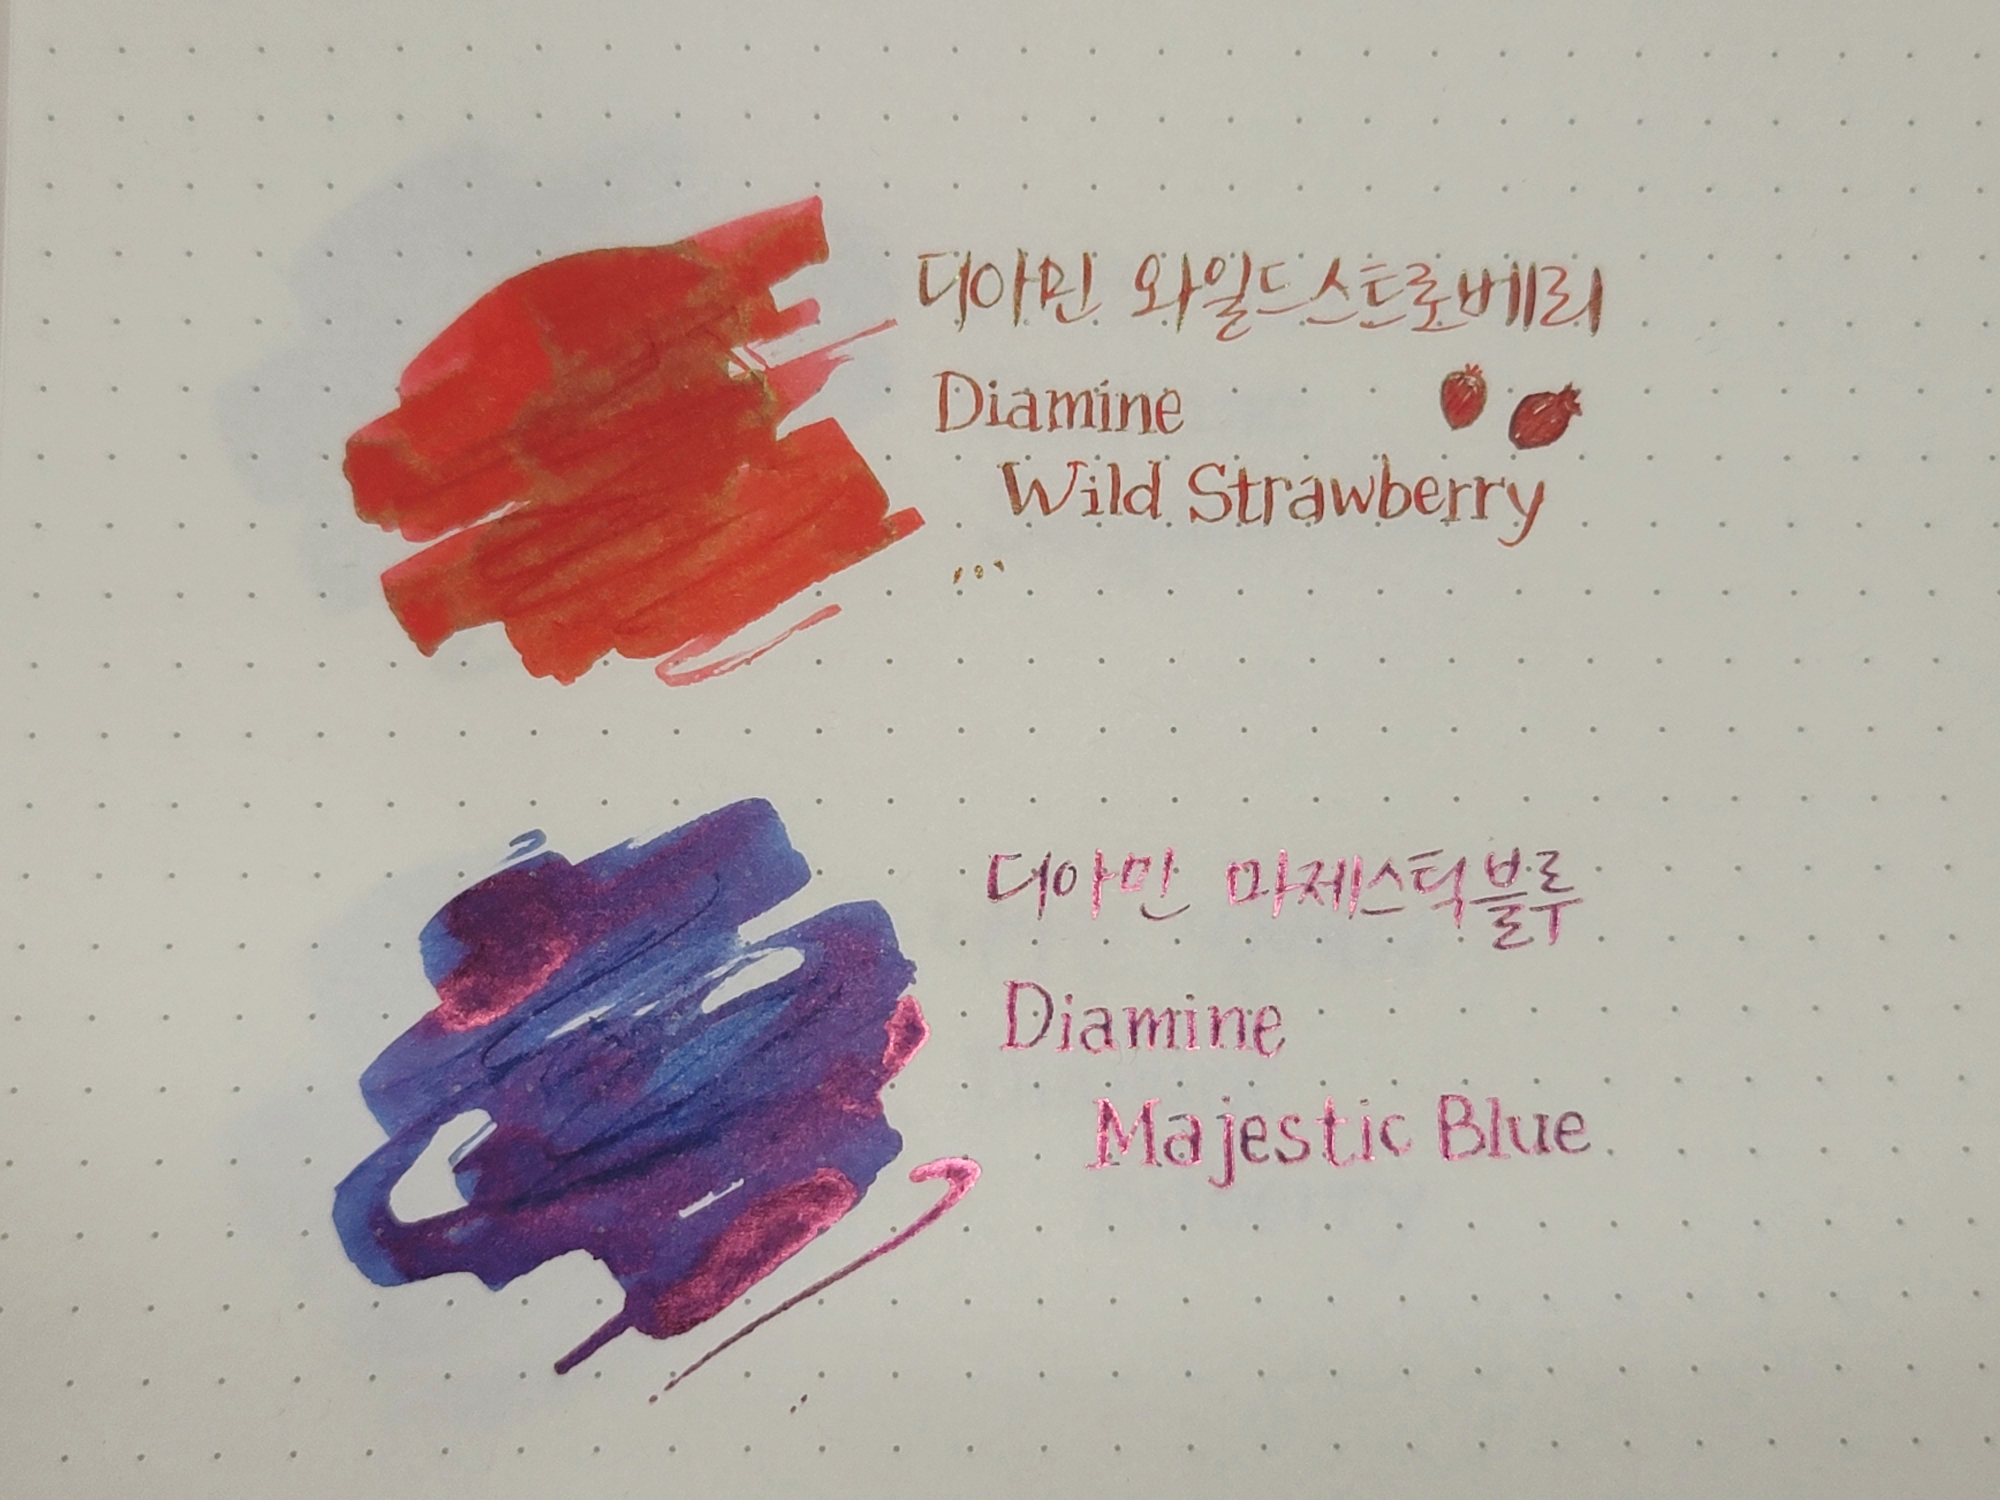 디아민 와일드스트로베리
Diamine
Wild Strawberry
디아민 마제스틱블루
Diamine
Majestic Blue